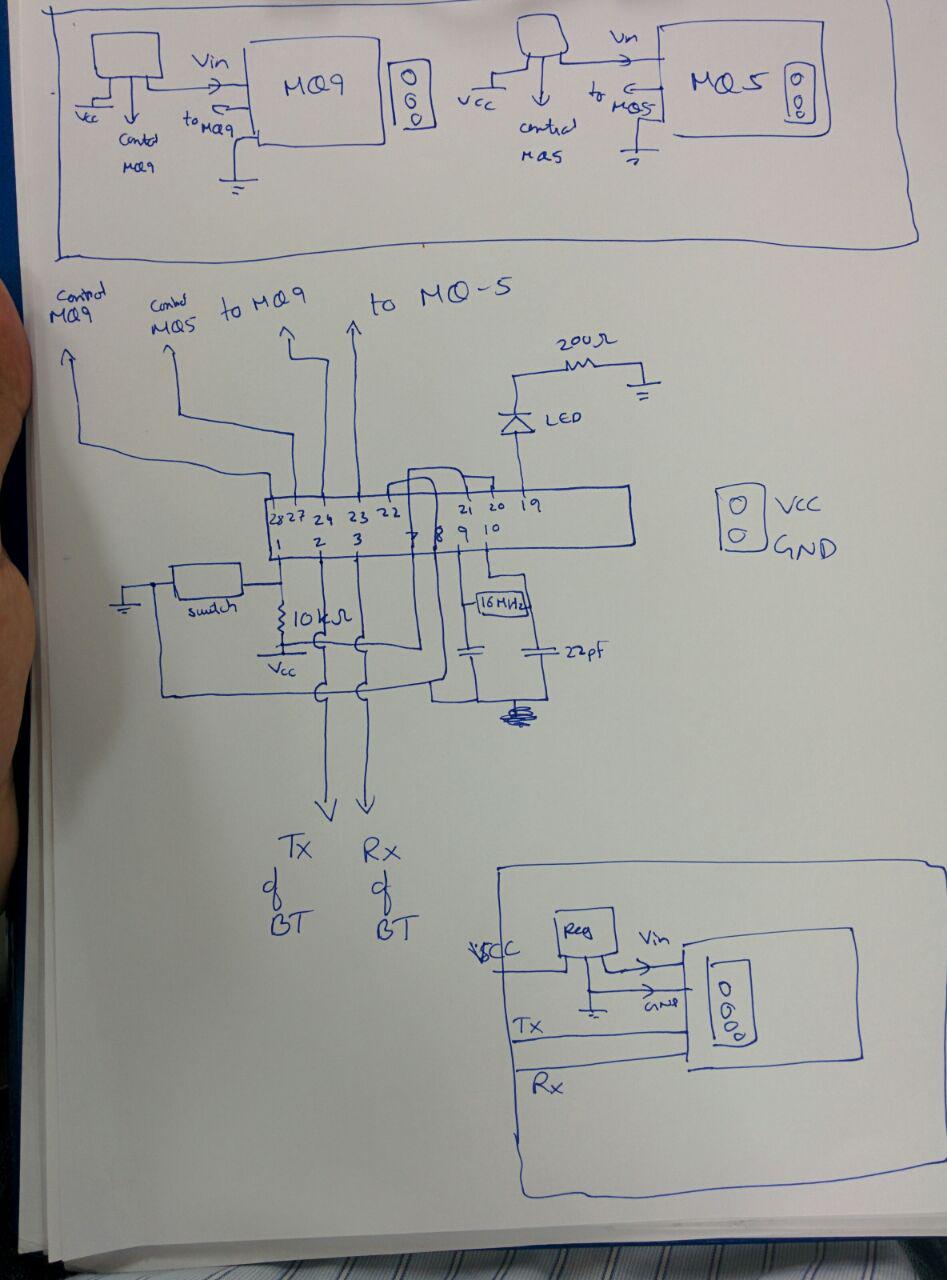 Vin
MQ9
Vcc
to MQ9
Control
MQ9
Vin
MQ5
Vcc
to
MQ5
control
MQ5
Control
MQ9
Control
MQ5
to MQ9
to MQ-5
200Ω
LED
28 27 24 23 22 21 20 19
1 2 3 7 8 9 10
VCC
GND
switch
10kΩ
Vcc
16MHz
22pF
Tx
of
BT
Rx
of
BT
Reg
Vin
GND
Tx
Rx